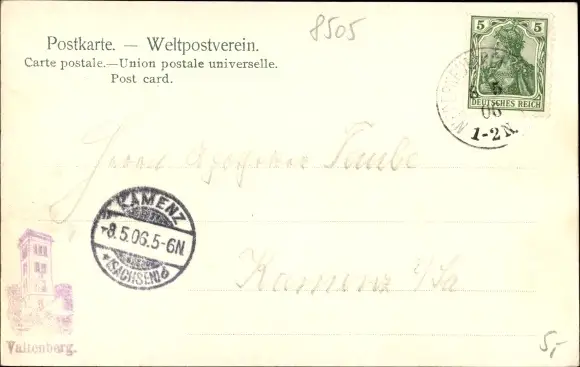 8505
Postkarte. — Weltpostverein.
Carte postale.—Union postale universelle.
Post card.
5 5
DEUTSCHES REICH
8 5
06
1-2N.
Herrn Apotheker Taube
KAMENZ
8.5.06.5-6N
(SACHSEN) d
Kamenz i/Sa
Valtenberg.
5,-